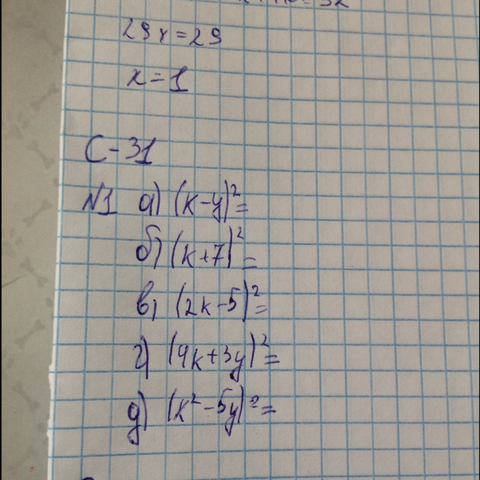 29x=29
x=1
С-31
№1 а) (k-y)²=
б) (k+7)²=
в) (2k-5)²=
г) (4k+3y)²=
д) (k²-5y)²=